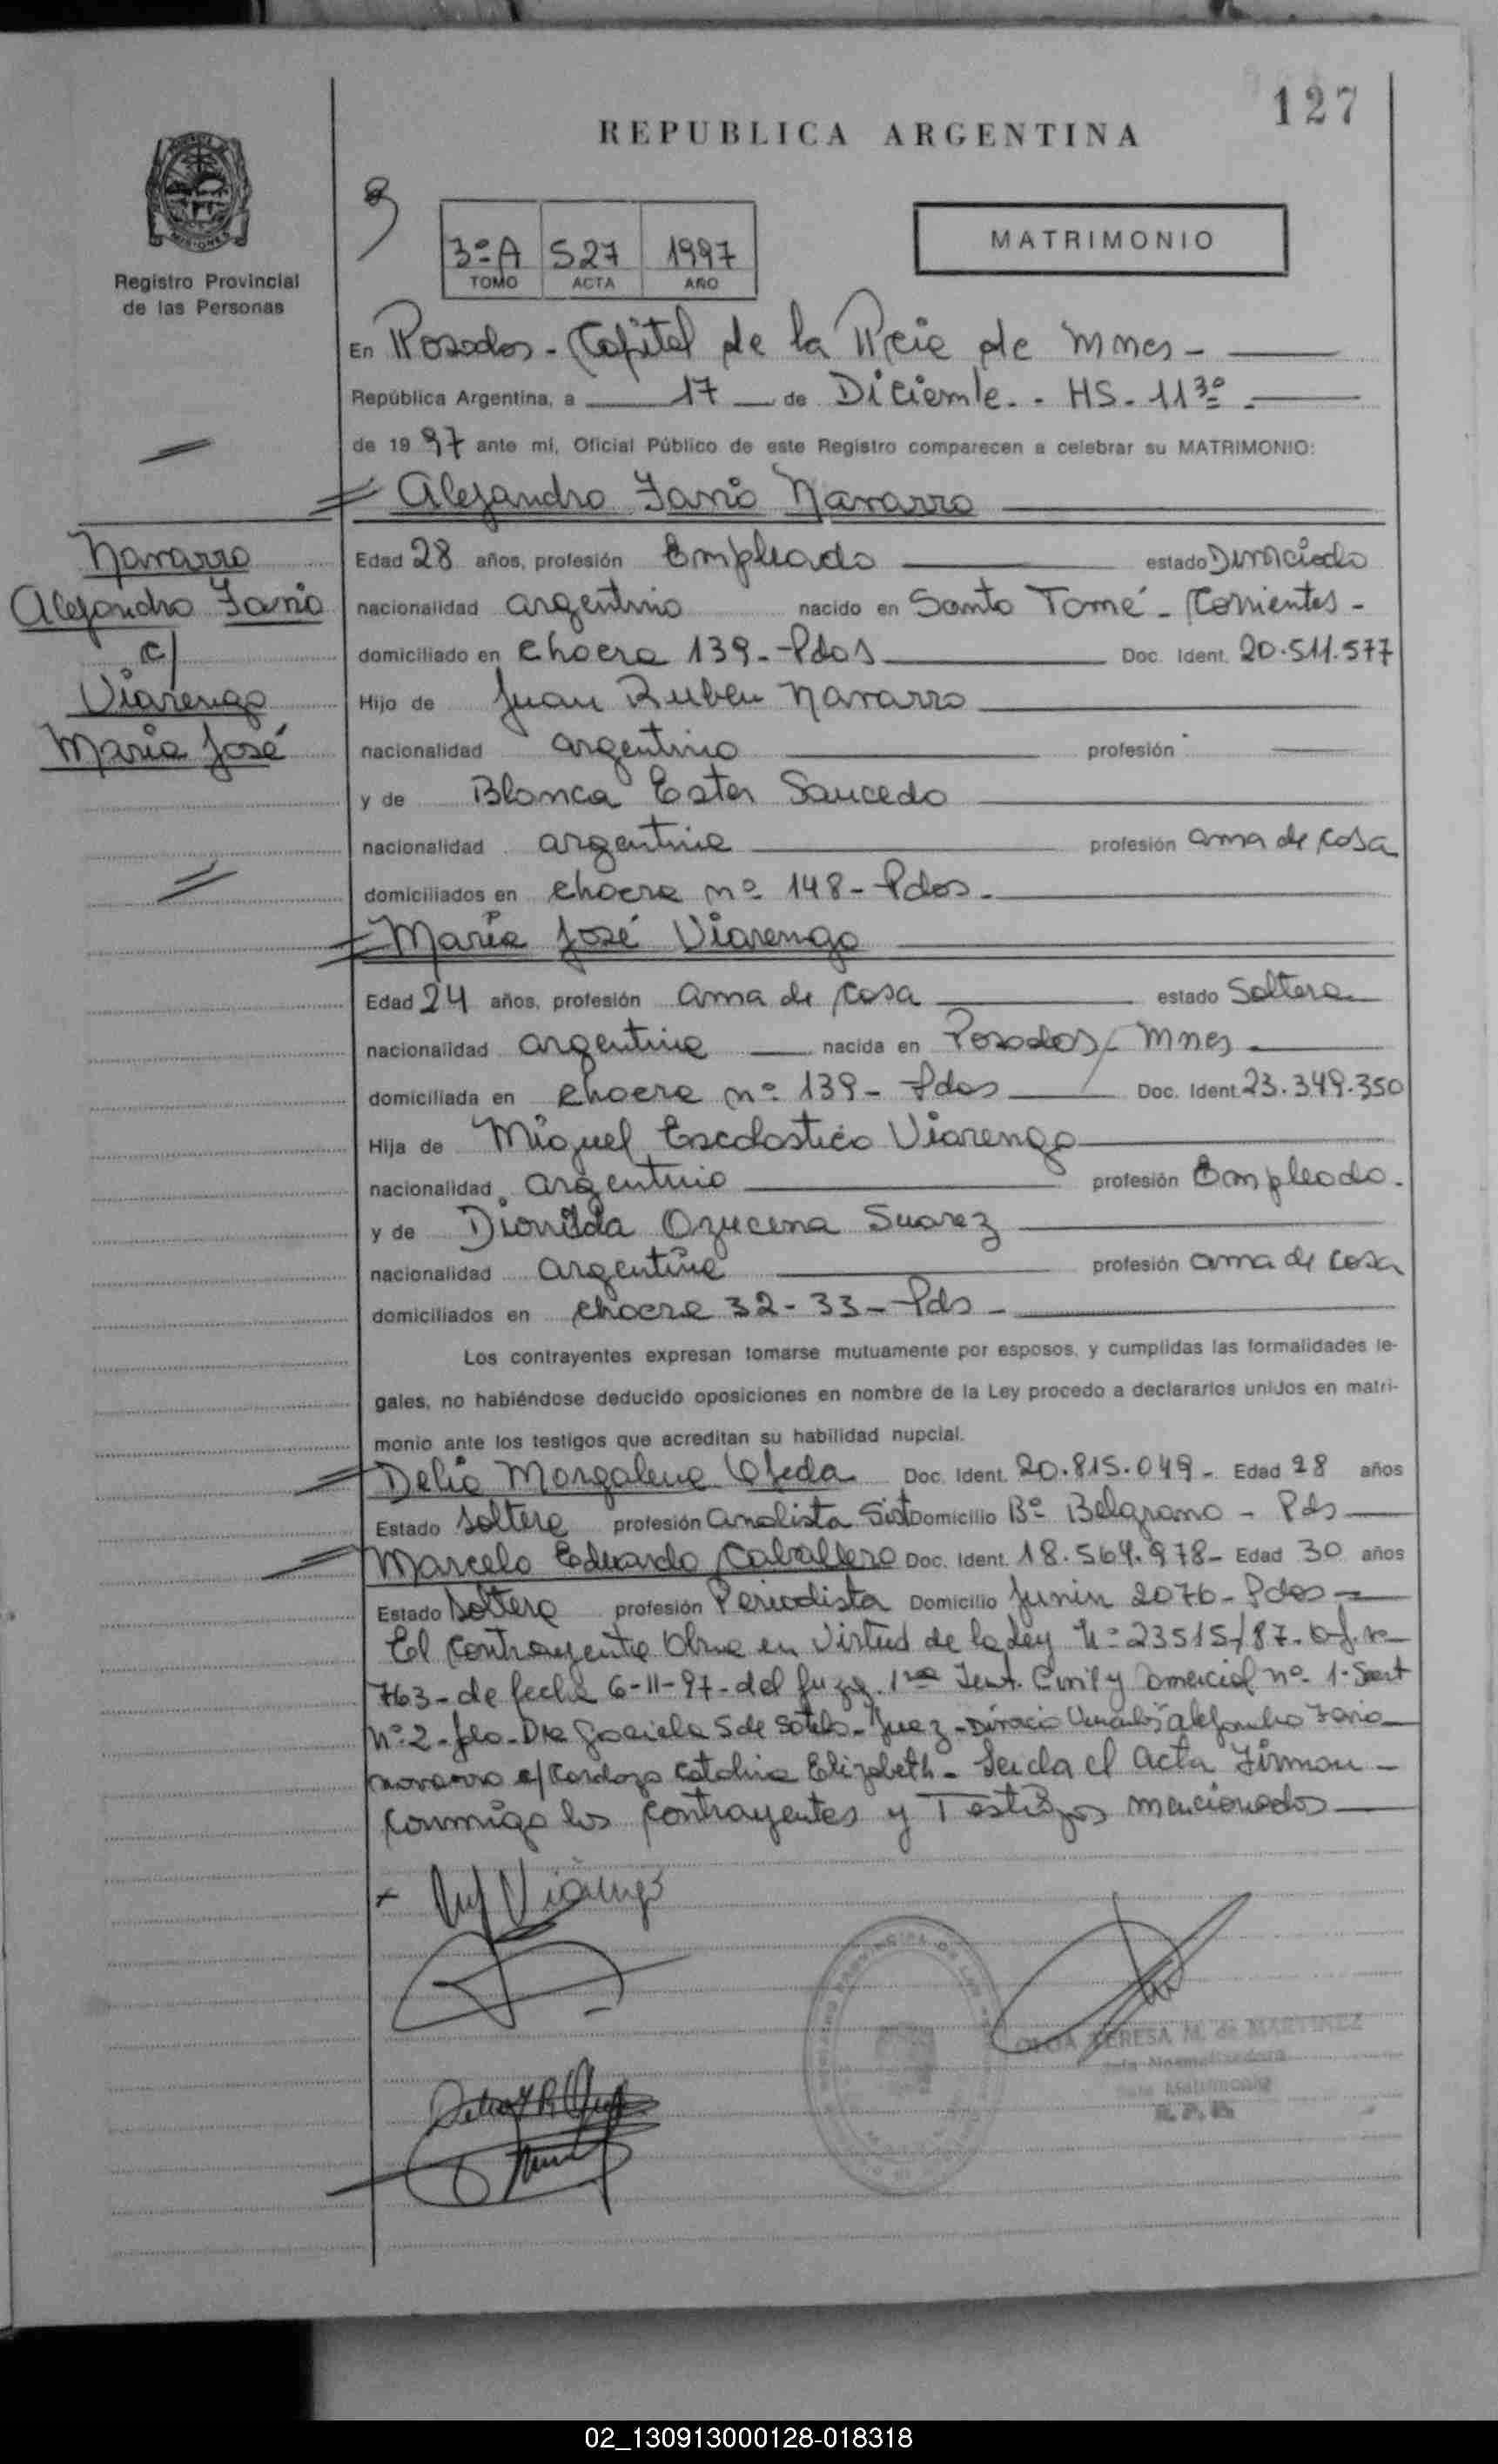 127
REPUBLICA ARGENTINA
MISIONES
Registro Provincial
de las Personas
3ºA 527 1997
TOMO ACTA AÑO
MATRIMONIO
En Posadas - Capital de la Pcia de Mnes -
República Argentina, a 17 de Diciembre. - HS. 11 30 -
de 1997 ante mí, Oficial Público de este Registro comparecen a celebrar su MATRIMONIO:
Alejandro Navarro
Navarro
Alejandro
c/
Viarengo
María José
Edad 28 años, profesión Empleado estado Divorciado
nacionalidad argentino nacido en Santo Tomé - Corrientes -
domiciliado en chacra 139 - Pdas Doc. Ident. 20.511.577
Hijo de Juan Ruben Navarro
nacionalidad argentino profesión
y de Blanca Ester Saucedo
nacionalidad argentina profesión ama de casa
domiciliados en chacra nº 148 - Pdas.
María José Viarengo
Edad 24 años, profesión ama de casa estado Soltera
nacionalidad argentina nacida en Posadas - Mnes
domiciliada en chacra nº 139 - Pdas Doc. Ident. 23.349.350
Hija de Miguel Escolastico Viarengo
nacionalidad argentino profesión Empleado.
y de Dionilda Ozucena Suarez
nacionalidad argentina profesión ama de casa
domiciliados en chacra 32-33 - Pds -
Los contrayentes expresan tomarse mutuamente por esposos, y cumplidas las formalidades le-
gales, no habiéndose deducido oposiciones en nombre de la Ley procedo a declararlos unidos en matri-
monio ante los testigos que acreditan su habilidad nupcial.
Delia Morgalena Ojeda Doc. Ident. 20.815.049 - Edad 28 años
Estado Soltera profesión analista Sist Domicilio Bº Belgrano - Pds
Marcelo Eduardo Caballero Doc. Ident. 18.564.978 - Edad 30 años
Estado Soltero profesión Periodista Domicilio Junin 2076 - Pdas
El contrayente Obra en Virtud de la Ley Nº 23515/87.
763 - de fecha 6-11-97 - del Juzg. 1ra Civil y Comercial nº 1.
Nº 2 - Dra Graciela S de Sotelo - Juez - Divorcio Alejandro
Navarro c/ Cardozo Catalina Elizabeth - Leida el Acta Firman -
conmigo los contrayentes y Testigos mencionados
Viarengo
OLGA TERESA M. de MARTINEZ
Sala Matrimonio
R. P. P.
02_130913000128-018318